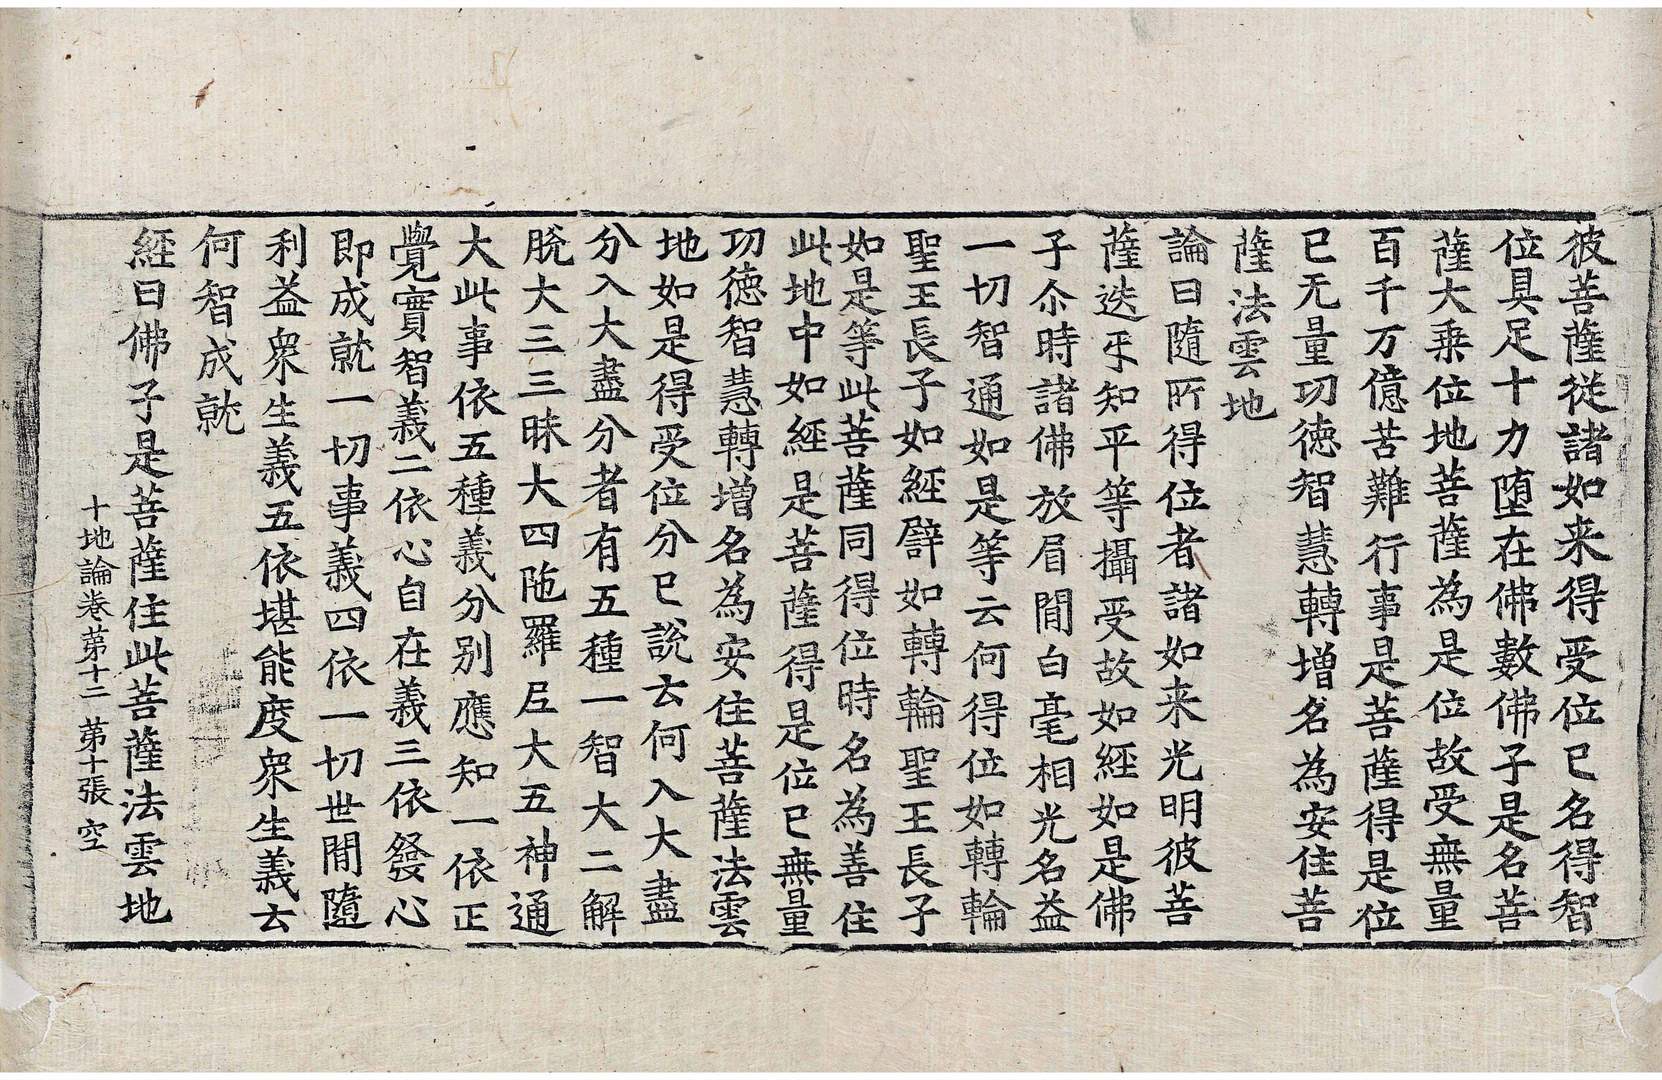 彼菩薩從諸如来得受位已名得智
位具足十力堕在佛數佛子是名菩
薩大乗位地菩薩為是位故受無量
百千万億苦難行事是菩薩得是位
已无量功德智慧轉增名為安住菩
薩法雲地
論曰隨所得位者諸如来光明彼菩
薩迭㸦知平等攝受故如經如是佛
子尒時諸佛放眉間白毫相光名益
一切智通如是等云何得位如轉輪
聖王長子如經譬如轉輪聖王長子
如是等此菩薩同得位時名為善住
此地中如經是菩薩得是位已無量
功德智慧轉增名為安住菩薩法雲
地如是得受位分已說云何入大盡
分入大盡分者有五種一智大二解
脫大三三昧大四陁羅尼大五神通
大此事依五種義分別應知一依正
覺實智義二依心自在義三依發心
即成就一切事義四依一切世間隨
利益衆生義五依堪能度衆生義云
何智成就
經曰佛子是菩薩住此菩薩法雲地
十地論卷第十二 第十張 空